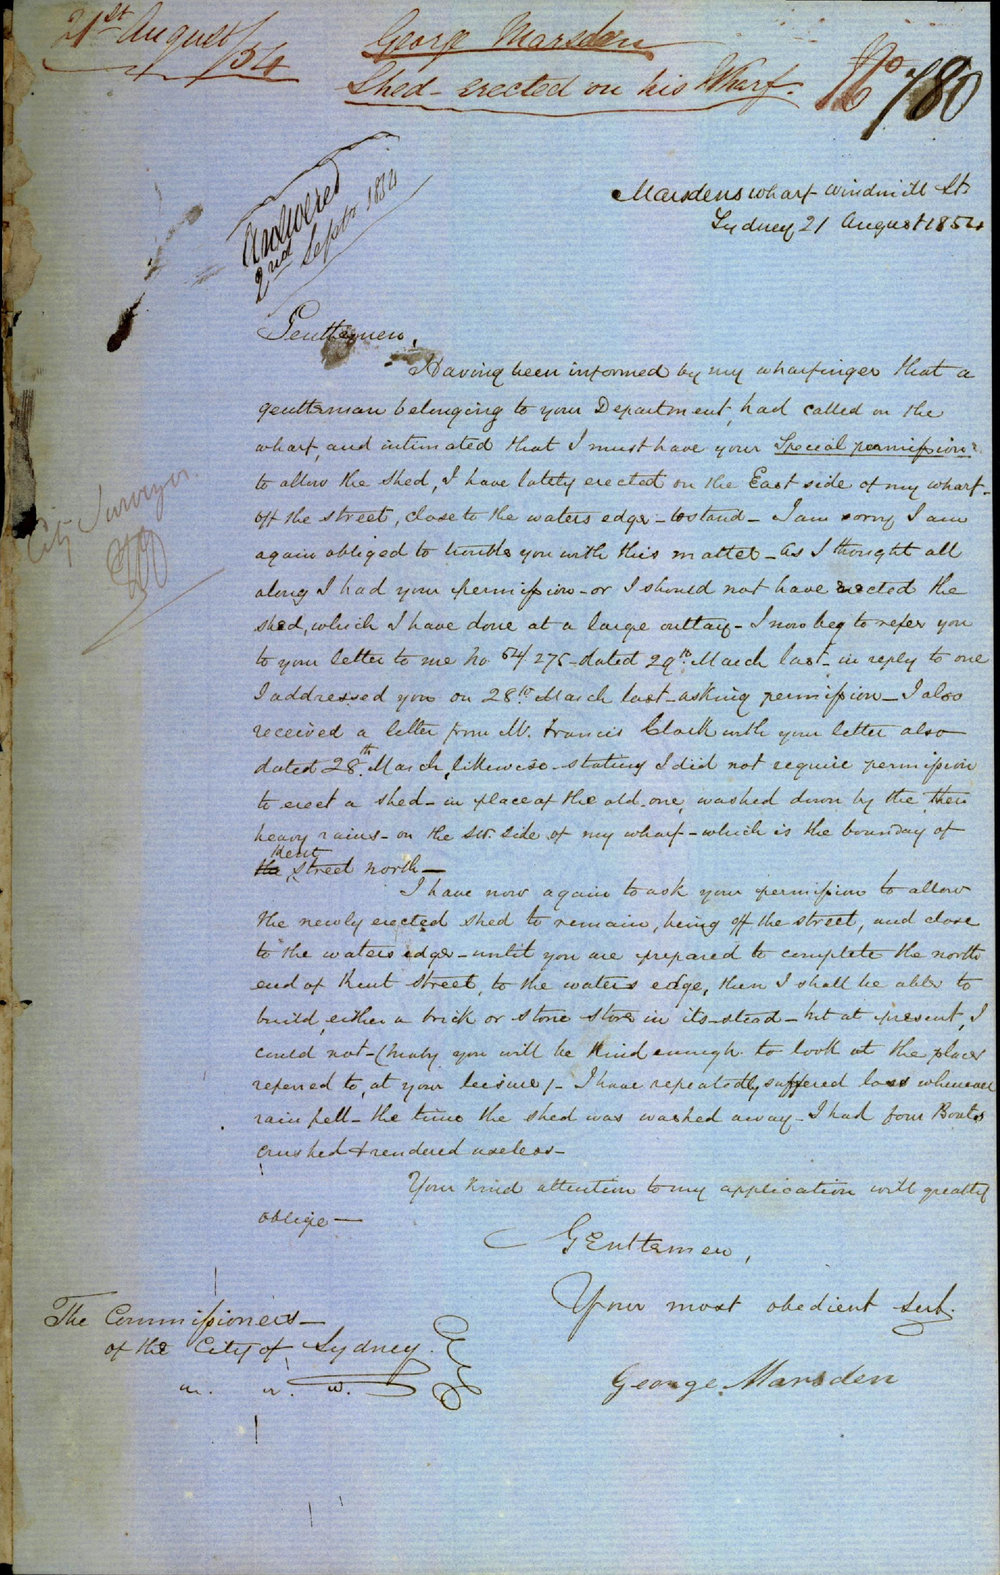 21st August/54
George Marsden
Shed - erected on his Wharf.
No 780
Answered
2nd Septr 1854
Marsdens wharf Windmill St
Sydney 21 August 1854
Gentlemen,
Having been informed by my wharfinger that a
gentleman belonging to your Department, had called on the
wharf, and intimated that I must have your Special permission
to allow the shed, I have lately erected on the East side of my wharf -
off the street, close to the waters edge - to stand - I am sorry I am
again obliged to trouble you with this matter - as I thought all
along I had your permission - or I should not have erected the
shed, which I have done at a large outlay - I now beg to refer you
to your letter to me No 54/275 - dated 29th March last - in reply to one
I addressed you on 28th March last - asking permission - I also
received a letter from Mr. Francis Clark with your letter also
dated 28th March, likewise - stating I did not require permission
to erect a shed - in place of the old one, washed down by the then
heavy rains - on the SW. side of my wharf - which is the bounday of
the Kent street north -
I have now again to ask your permission to allow
the newly erected shed to remain, being off the street, and close
to the waters edge - until you are prepared to complete the north
end of Kent street, to the waters edge, then I shall be able to
build, either a brick or stone store in its stead - but at present, I
could not - ( you will be kind enough to look at the place
referred to, at your leisure ) - I have repeatedly suffered loss whenever
rain fell - the time the shed was washed away - I had four Boats
crushed & rendered useless -
Your kind attention to my application will greatly
oblige -
Gentlemen,
Your most obedient Sert.
George Marsden
The Commissioners -
of the City of Sydney.
City Surveyor